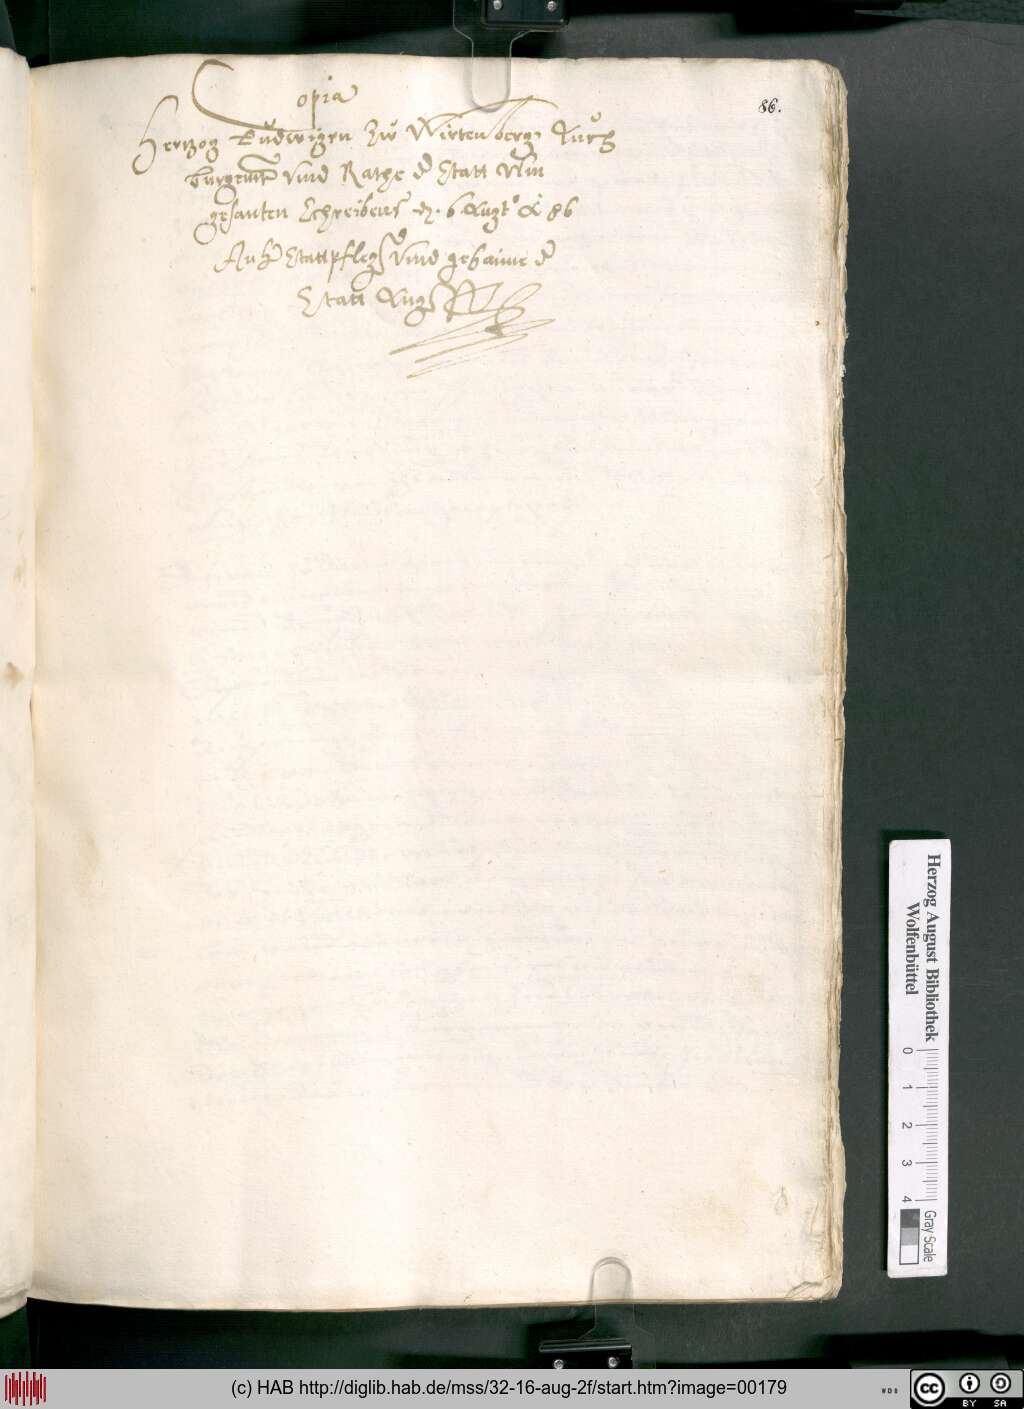 86.
Copia
Hertzog Ludwigen Zu Wirtenberg, Auch
Burgermr Vnd Rathe d Statt Vlm
gesanten Schreibens dz. 6 Augto Ao 86
An H Stattpfleg Vnd gehaime d
Statt Augs
Herzog August Bibliothek
Wolfenbüttel
0 1 2 3 4
Gray Scale
(c) HAB http://diglib.hab.de/mss/32-16-aug-2f/start.htm?image=00179
WDB
cc BY SA